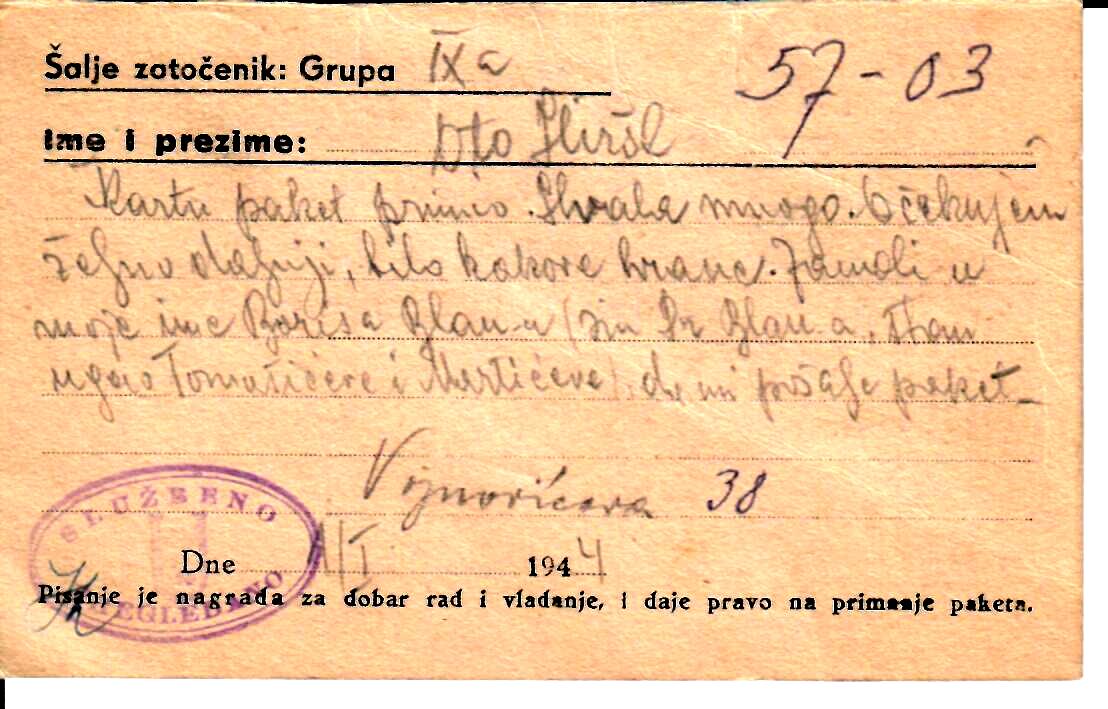 Šalje zatočenik: Grupa IXa
57-03
Ime i prezime: Oto Hiršl
Kartu paket primio. Hvala mnogo. Očekujem
željno daljnji, bilo kakove hrane. Zamoli u
moje ime Borisa Blau-a (sin Dr Blau-a,
ugao Tomašićeve i Martićeve) da mi pošalje paket
38
SLUŽBENO
Dne 1/I 1944
PREGLEDANO
Pisanje je nagrada za dobar rad i vladanje, i daje pravo na primanje paketa.